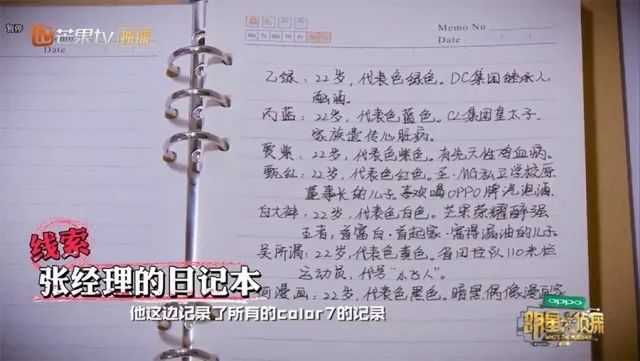 暂停
芒果tv 独播
Memo No.
Date
Mo Tu We Th Fr Sa Su
乙绿：22岁，代表色绿色。DC集团继承人
丙蓝：22岁，代表色蓝色。CZ集团皇太子。
家族遗传心脏病。
贾紫：22岁，代表色紫色。有先天性
甄红：22岁，代表色红色。
董事长的儿子。喜欢喝OPPO牌汽泡酒
白大神：22岁，代表色白色。芒果荣耀最强
王者，首富白·首起家·富得漏油的儿子
吴所谓：22岁，代表色黄色。省田径队110米栏
运动员，代号“小飞人”。
漫画：22岁，代表色黑色。暗黑偶像漫画家
线索
张经理的日记本
他这边记录了所有的color7的记录
oppo
明星大侦探
WHO'S THE MURDERER